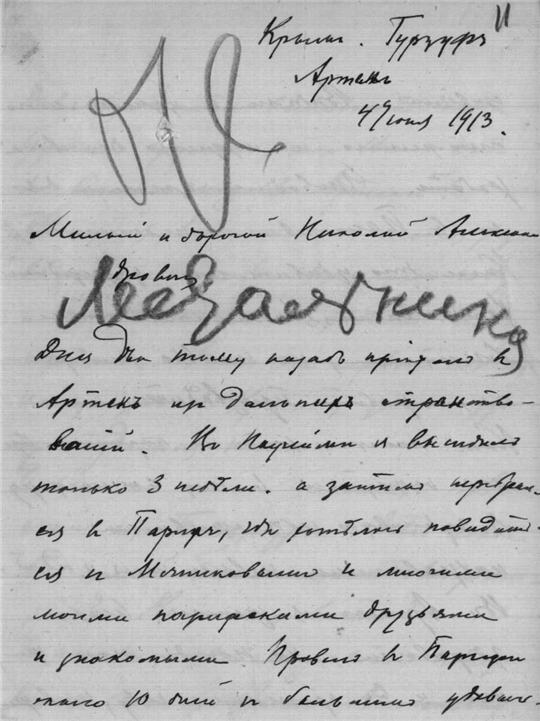 11
Крымъ. Гурзуфъ
Артекъ
4 Июня 1913.
Милый и дорогой Николай Алексан
дровичъ
Дня два тому назадъ пріѣхалъ въ
Артекъ изъ дальнихъ странство-
ваній. Въ я
только 3 недѣли. а затѣмъ перебрал-
ся въ Парижъ, гдѣ хотѣлось повидать-
ся съ Мечниковымъ и многими
моими парижскими друзьями
и знакомыми Провелъ въ Парижѣ
около 10 дней и съ большимъ удоволь-